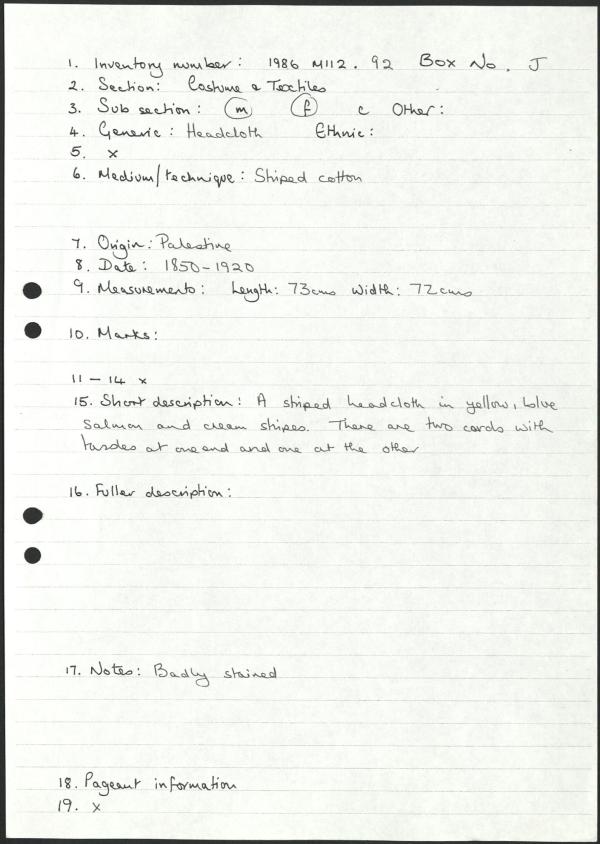 1. Inventory number: 1986 M112.92 Box No. J
2. Section: Costume & Textiles
3. Sub section: m f c Other:
4. Generic: Headcloth Ethnic:
5. x
6. Medium/technique: Striped cotton
7. Origin: Palestine
8. Date: 1850-1920
9. Measurements: Length: 73cms Width: 72cms
10. Marks:
11 - 14 x
15. Short description: A striped headcloth in yellow, blue
salmon and cream stripes. There are two cords with
tassles at one end and one at the other
16. Fuller description:
17. Notes: Badly stained
18. Pageant information
19. x